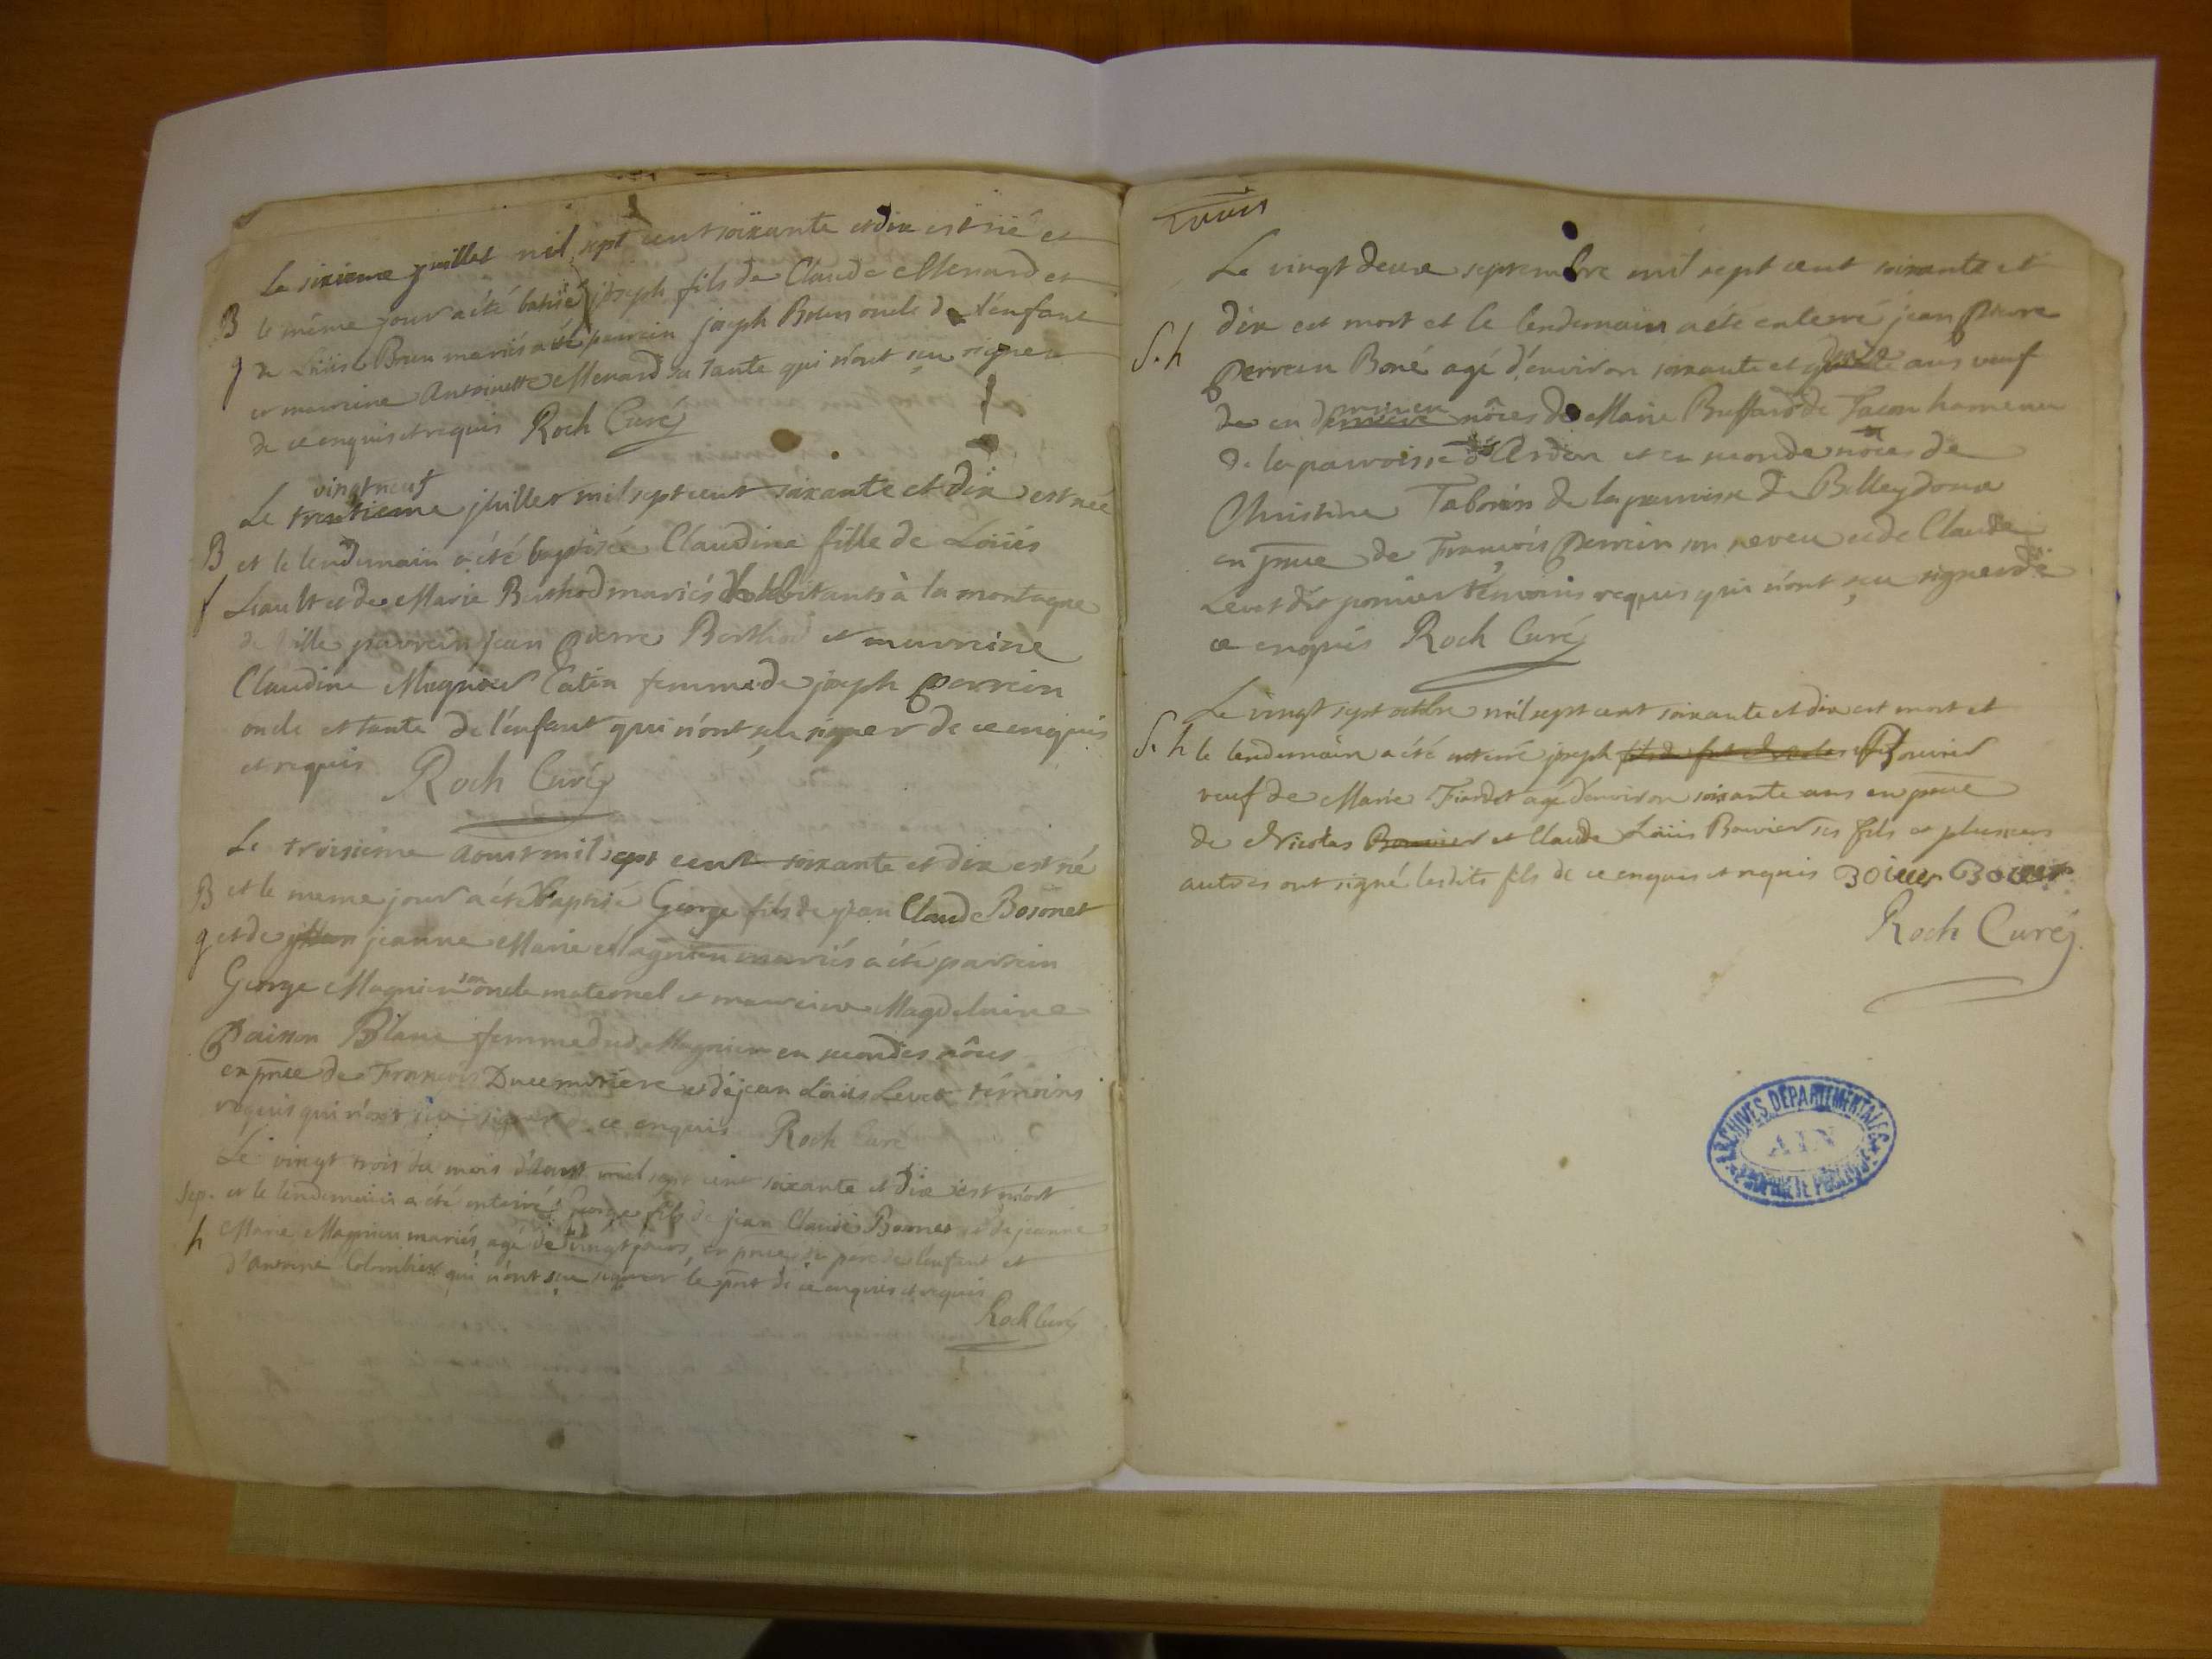 Le sixieme juillet mil sept cent soixante et dix est né et
B le même jour a été batisé joseph fils de Claude Menard et
g de Brun mariés a été parrein joseph oncle de l'enfant
et marreine Antoinette Menard sa tante qui n'ont sçu signer
de ce enquis et requis Roch Curé
vingt neuf
Le trentieme juillet mil sept cent soixante et dix est née
B et le lendemain a été baptisée Claudine fille de Loüis
f Liault et de Marie Berthod mariés habitants à la montagne
de ville parrein jean pierre Berthod et marreine
Claudine Magnier Catin femme de joseph perrein
oncle et tante de l'enfant qui n'ont sçu signer de ce enquis
et requis Roch Curé
Le troisiéme aoust mil sept cent soixante et dix est né
B et le meme jour a été baptisé George fils de jean Claude Bosonet
g et de jeanne Marie Magnien mariés a été parrein
George Magnien son oncle maternel et marreine Magdeleine
Paisson Blanc femme dud Magnien en secondes nôces
en pnce de François Ducemetiere et de jean Loüis Levet témoins
requis qui n'ont sçu signer de ce enquis Roch Curé
Le vingt trois du mois d'aoust mil sept cent soixante et dix est mort
Sep. et le lendemain a été enterré George fils de jean Claude Bosonet et de jeanne
h Marie Magnien mariés, agé de vingt jours, en pnce du pére de l'enfant et
d'Antoine Colombier qui n'ont sçu signer le pnt de ce enquis et requis
Roch Curé
Le vingt deux septembre mil sept cent soixante et
dix est mort et le lendemain a été enterré jean pierre
S. h perrein Boné agé d'environ soixante et ans veuf
de en nôces de Marie Buffard de Tacon hameau
de la parroisse d'Ardon et en seconde nôces de
Christine Taborin de la parroisse de Belleydoux
en pnce de François perrein son neveu et de Claude
Levet dit ponier témoins requis qui n'ont sçu signer de
ce enquis Roch Curé
Le vingt sept octobre mil sept cent soixante et dix est mort et
S. h le lendemain a été enterré joseph fils de feu Nicolas Bouvier
veuf de Marie agé d'environ soixante ans en pnce
de Nicolas Bouvier et Claude Loüis Bouvier ses fils et plusieurs
autres ont signé lesdits fils de ce enquis et requis
Roch Curé
ARCHIVES DÉPARTEMENTALES
AIN
PROPRIÉTÉ PUBLIQUE